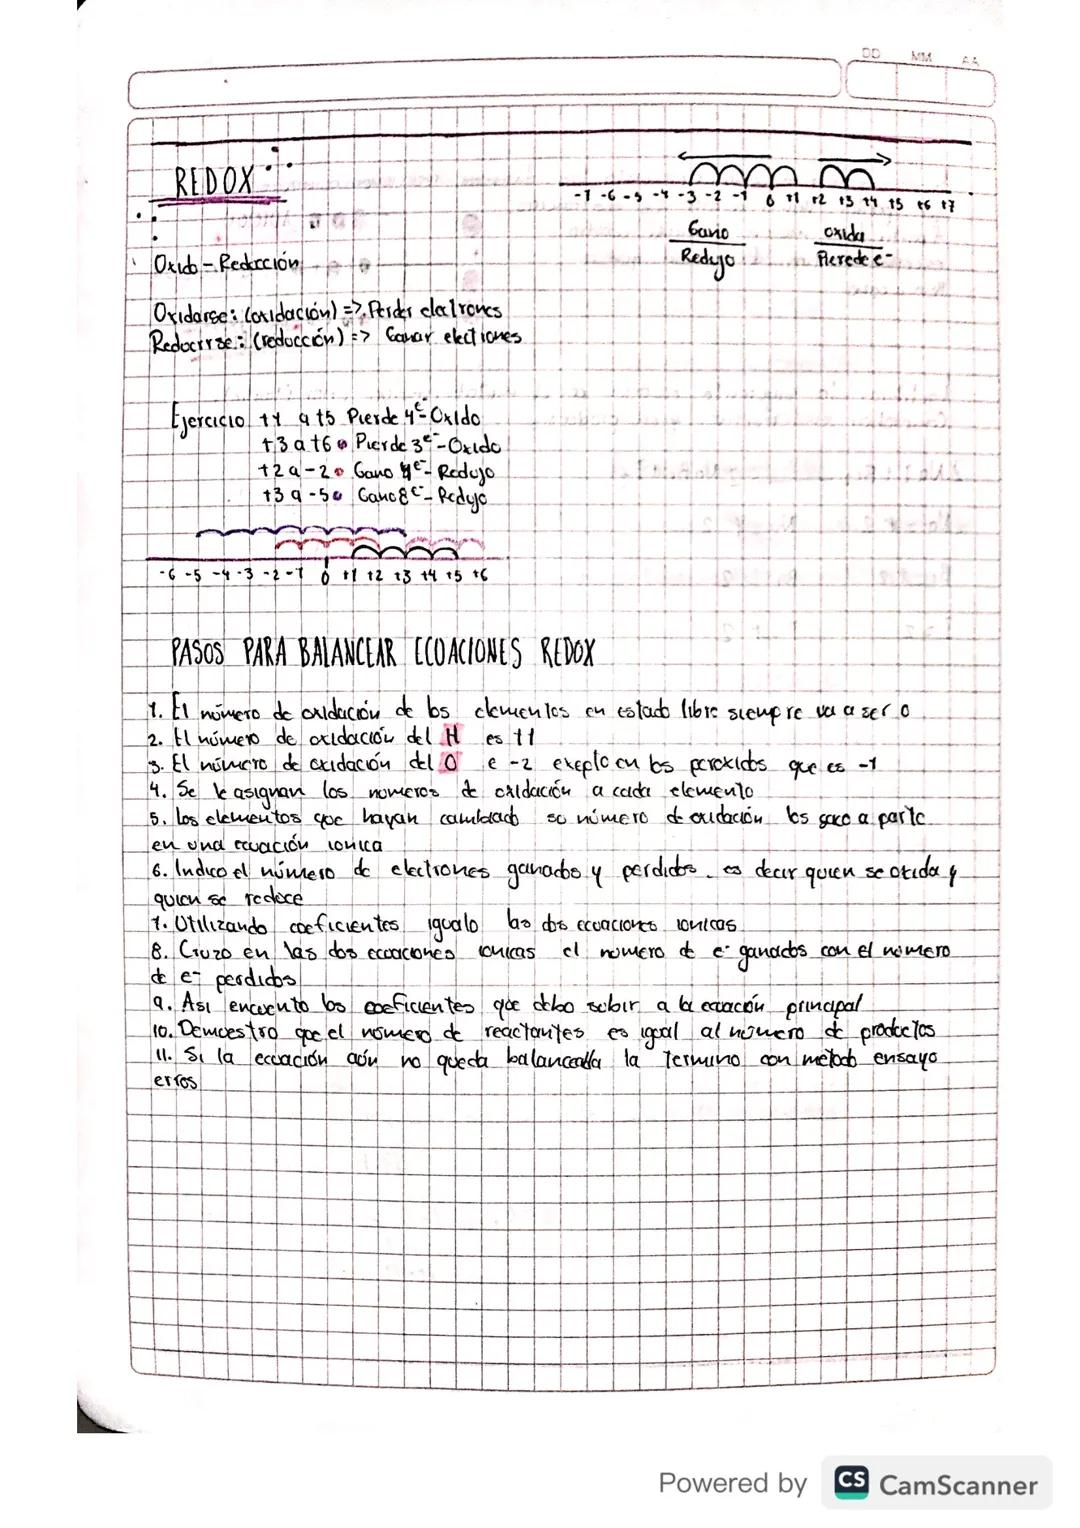 DD MM AA
REDOX
-7 -6 -5 -4 -3 -2 -1 0 +1 +2 +3 +4 +5 +6 +7
Gano oxida
Redujo Pierede e-
Oxido - Reducción
Oxidarse: (oxidación) => Perder electrones
Reducirse: (reducción) => Ganar electrones
Ejercicio +1 a +5 Pierde 4e- Oxido
+3 a +6 Pierde 3e- Oxido
+2 a -2 Gano 4e- Redujo
+3 a -5 Gano 8e- Redujo
-6 -5 -4 -3 -2 -1 0 +1 +2 +3 +4 +5 +6
PASOS PARA BALANCEAR ECUACIONES REDOX
1. El número de oxidación de los elementos en estado libre siempre va a ser 0
2. El número de oxidación del H es +1
3. El número de oxidación del O e -2 exepto en los peroxidos que es -1
4. Se le asignan los numeros de oxidación a cada elemento
5. Los elementos que hayan cambiado su número de oxidación los saco a parte
en una ecuación ionica
6. Indico el número de electrones ganados y perdidos. es decir quien se oxida y
quien se reduce
7. Utilizando coeficientes igualo las dos ecuaciones ionicas
8. Cruzo en las dos ecuaciones ionicas el numero de e- ganados con el numero
de e- perdidos
9. Asi encuento los coeficientes que debo subir a la ecuación principal
10. Demuestro que el número de reactantes es igual al número de productos
11. Si la ecuación aún no queda balanceada la termino con metodo ensayo
error
Powered by CS CamScanner